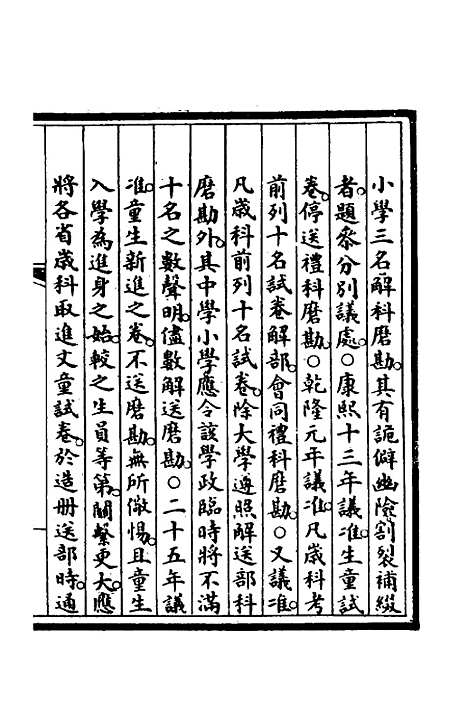 小學三名解科磨勘。其有詭僻幽險割裂補綴
者。題叅分別議處。○康熙十三年議准。生童試
卷。停送禮科磨勘。○乾隆元年議准。凡歲科考
前列十名試卷解部。會同禮科磨勘。○又議准。
凡歲科前列十名試卷。除大學遵照解送部科
磨勘外。其中學小學應令該學政臨時將不滿
十名之數聲明。儘數解送磨勘。○二十五年議
准。童生新進之卷。不送磨勘。無所儆惕。且童生
入學為進身之始。較之生員等第。關繫更大。應
將各省歲科取進文童試卷。於造册送部時。通